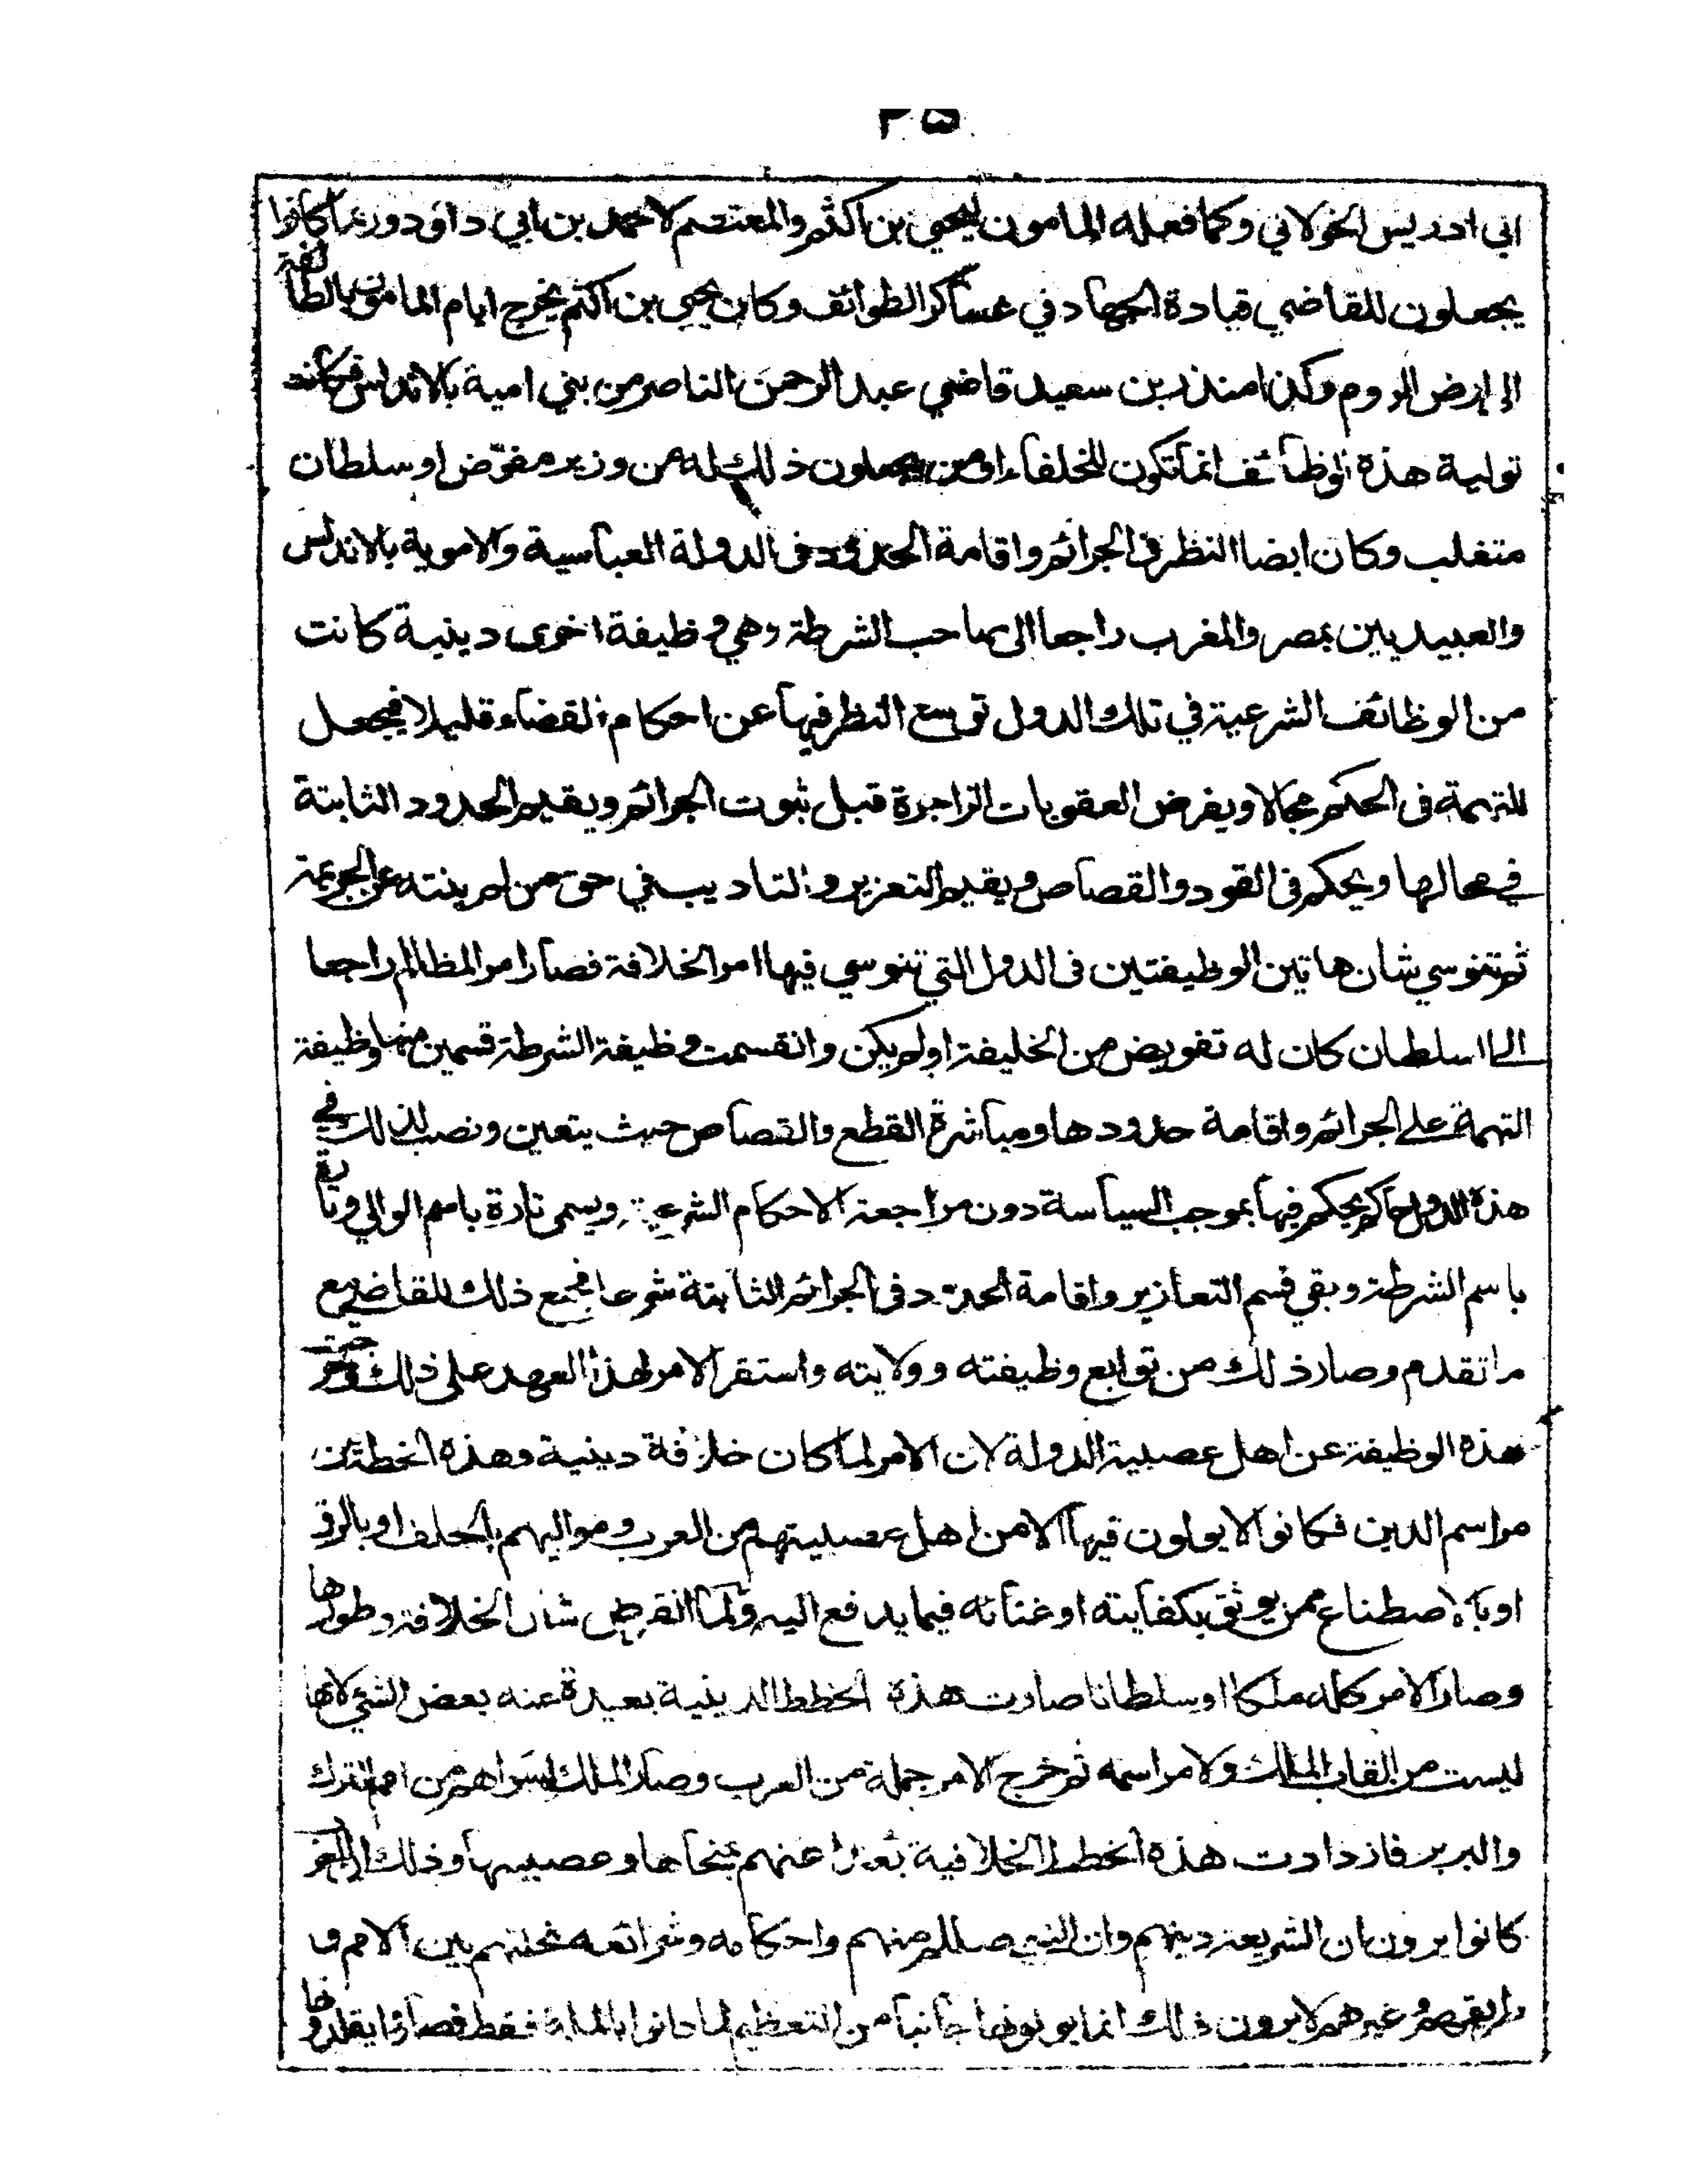 ٣٥
ابي ادريس الخولاني وكما فعله المامون ليحيي بن اكثم والمعتصم لاحمد بن ابي داود وربما كانوا
يجعلون للقاضي قيادة الجهاد في عساكر الطوائف وكان يحيي بن اكثم يخرج ايام المامون بالطائفة
الى ارض الروم وكذا منذر بن سعيد قاضي عبد الرحمن الناصر من بني امية بالاندلس فكانت
تولية هذه الوظائف انما تكون للخلفاء او من يجعلون ذلك له من وزير مفوّض او سلطان
متغلب وكان ايضا النظر في الجرائم واقامة الحدود في الدولة العباسية والاموية بالاندلس
والعبيديين بمصر والمغرب راجعا الى صاحب الشرطة وهي وظيفة اخرى دينية كانت
من الوظائف الشرعية في تلك الدول توسع النظر فيها عن احكام القضاء قليلا فيجعل
للتهمة في الحكم مجالا ويفرض العقوبات الزاجرة قبل ثبوت الجرائم ويقيم الحدود الثابتة
في محالها ويحكم في القود والقصاص ويقيم التعزير والتاديب في حق من لم ينته عن الجريمة
ثم تنوسي شان هاتين الوظيفتين في الدول التي تنوسي فيها امر الخلافة فصار امر المظالم راجعا
الى السلطان كان له تفويض من الخليفة او لم يكن وانقسمت وظيفة الشرطة قسمين منها وظيفة
التهمة على الجرائم واقامة حدودها ومباشرة القطع والقصاص حيث يتعين ونصب لذلك في
هذه الدول حاكم يحكم فيها بموجب السياسة دون مراجعة الاحكام الشرعية ويسمى تارة باسم الوالي وتارة
باسم الشرطة وبقي قسم التعازير واقامة الحدود في الجرائم الثابتة شرعا فجمع ذلك للقاضي مع
ما تقدم وصار ذلك من توابع وظيفته وولايته واستقر الامر لهذا العهد على ذلك وخرجت
هذه الوظيفة عن اهل عصبية الدولة لان الامر لما كان خلافة دينية وهذه الخطة من
مراسم الدين فكانوا لا يولون فيها الا من اهل عصبيتهم من العرب ومواليهم بالحلف او بالرق
او بالاصطناع ممن يوثق بكفايته او غنائه فيما يدفع اليه ولما انقرض شان الخلافة وطورها
وصار الامر كله ملكا او سلطانا صارت هذه الخطط الدينية بعيدة عنه بعض الشي لانها
ليست من القاب الملك ولا مراسمه ثم خرج الامر جملة من العرب وصار الملك لسواهم من امم الترك
والبربر فازدادت هذه الخطط الخلافية بعدا عنهم بمنحاها وعصبيتها وذلك ان العرب
كانوا يرون ان الشريعة دينهم وان النبي صللم منهم واحكامه وشرائعه نحلتهم بين الامم و
طريقهم وغيرهم لا يرون ذلك انما يولونها جانبا من التعظيم لما دانوا بالملة فقط فصاروا يقلدونها